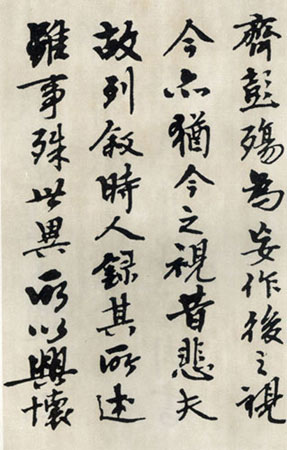 齊彭殤為妄作後之視
今亦猶今之視昔悲夫
故列敘時人錄其所述
雖事殊世異所以興懷